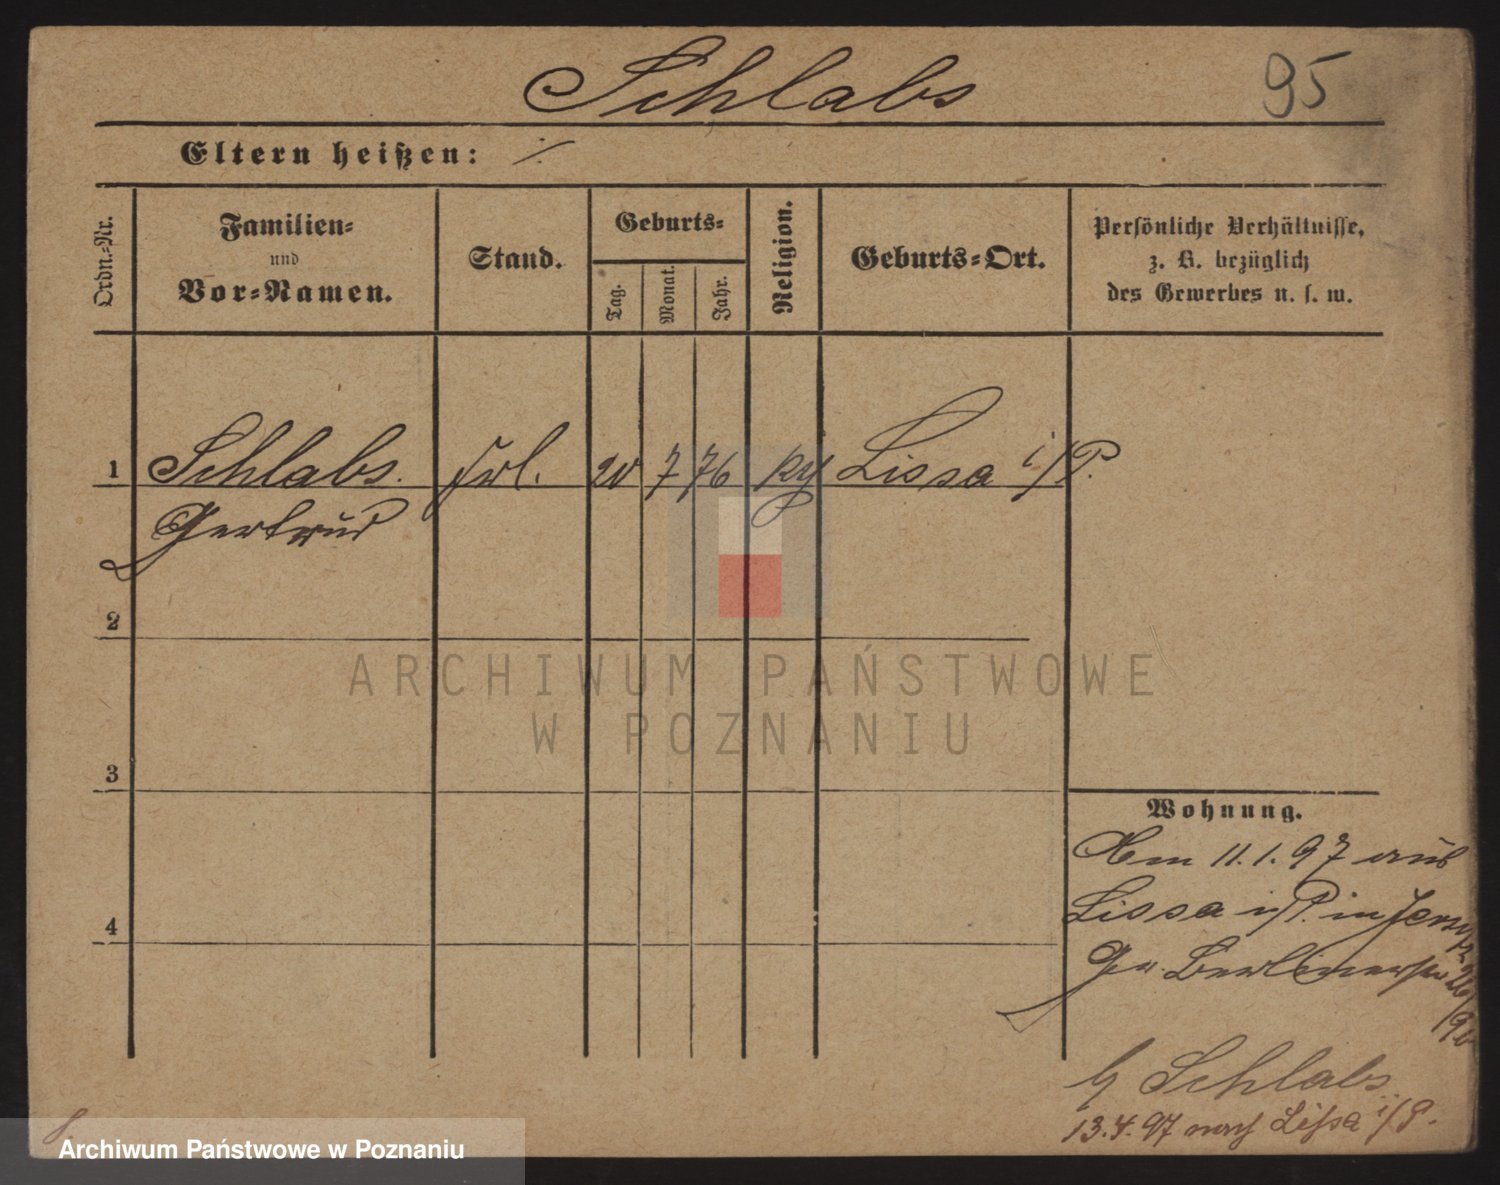 Schlabs
95
Eltern heißen: ./.
Ordn.-Nr.
Familien-
und
Vor-Namen.
Stand.
Geburts-
Tag.
Monat.
Jahr.
Religion.
Geburts-Ort.
Persönliche Verhältnisse,
z. B. bezüglich
des Gewerbes u. s. w.
1 Schlabs. Frl. 20 7 76 Lissa i/P.
Gertrud
2
ARCHIWUM PAŃSTWOWE
W POZNANIU
3
4
Wohnung.
11.1.97 aus
Lissa i/P. in
Gr. Berlinerstr
b/ Schlabs
13.4.97 nach Lissa i/P.
Archiwum Państwowe w Poznaniu